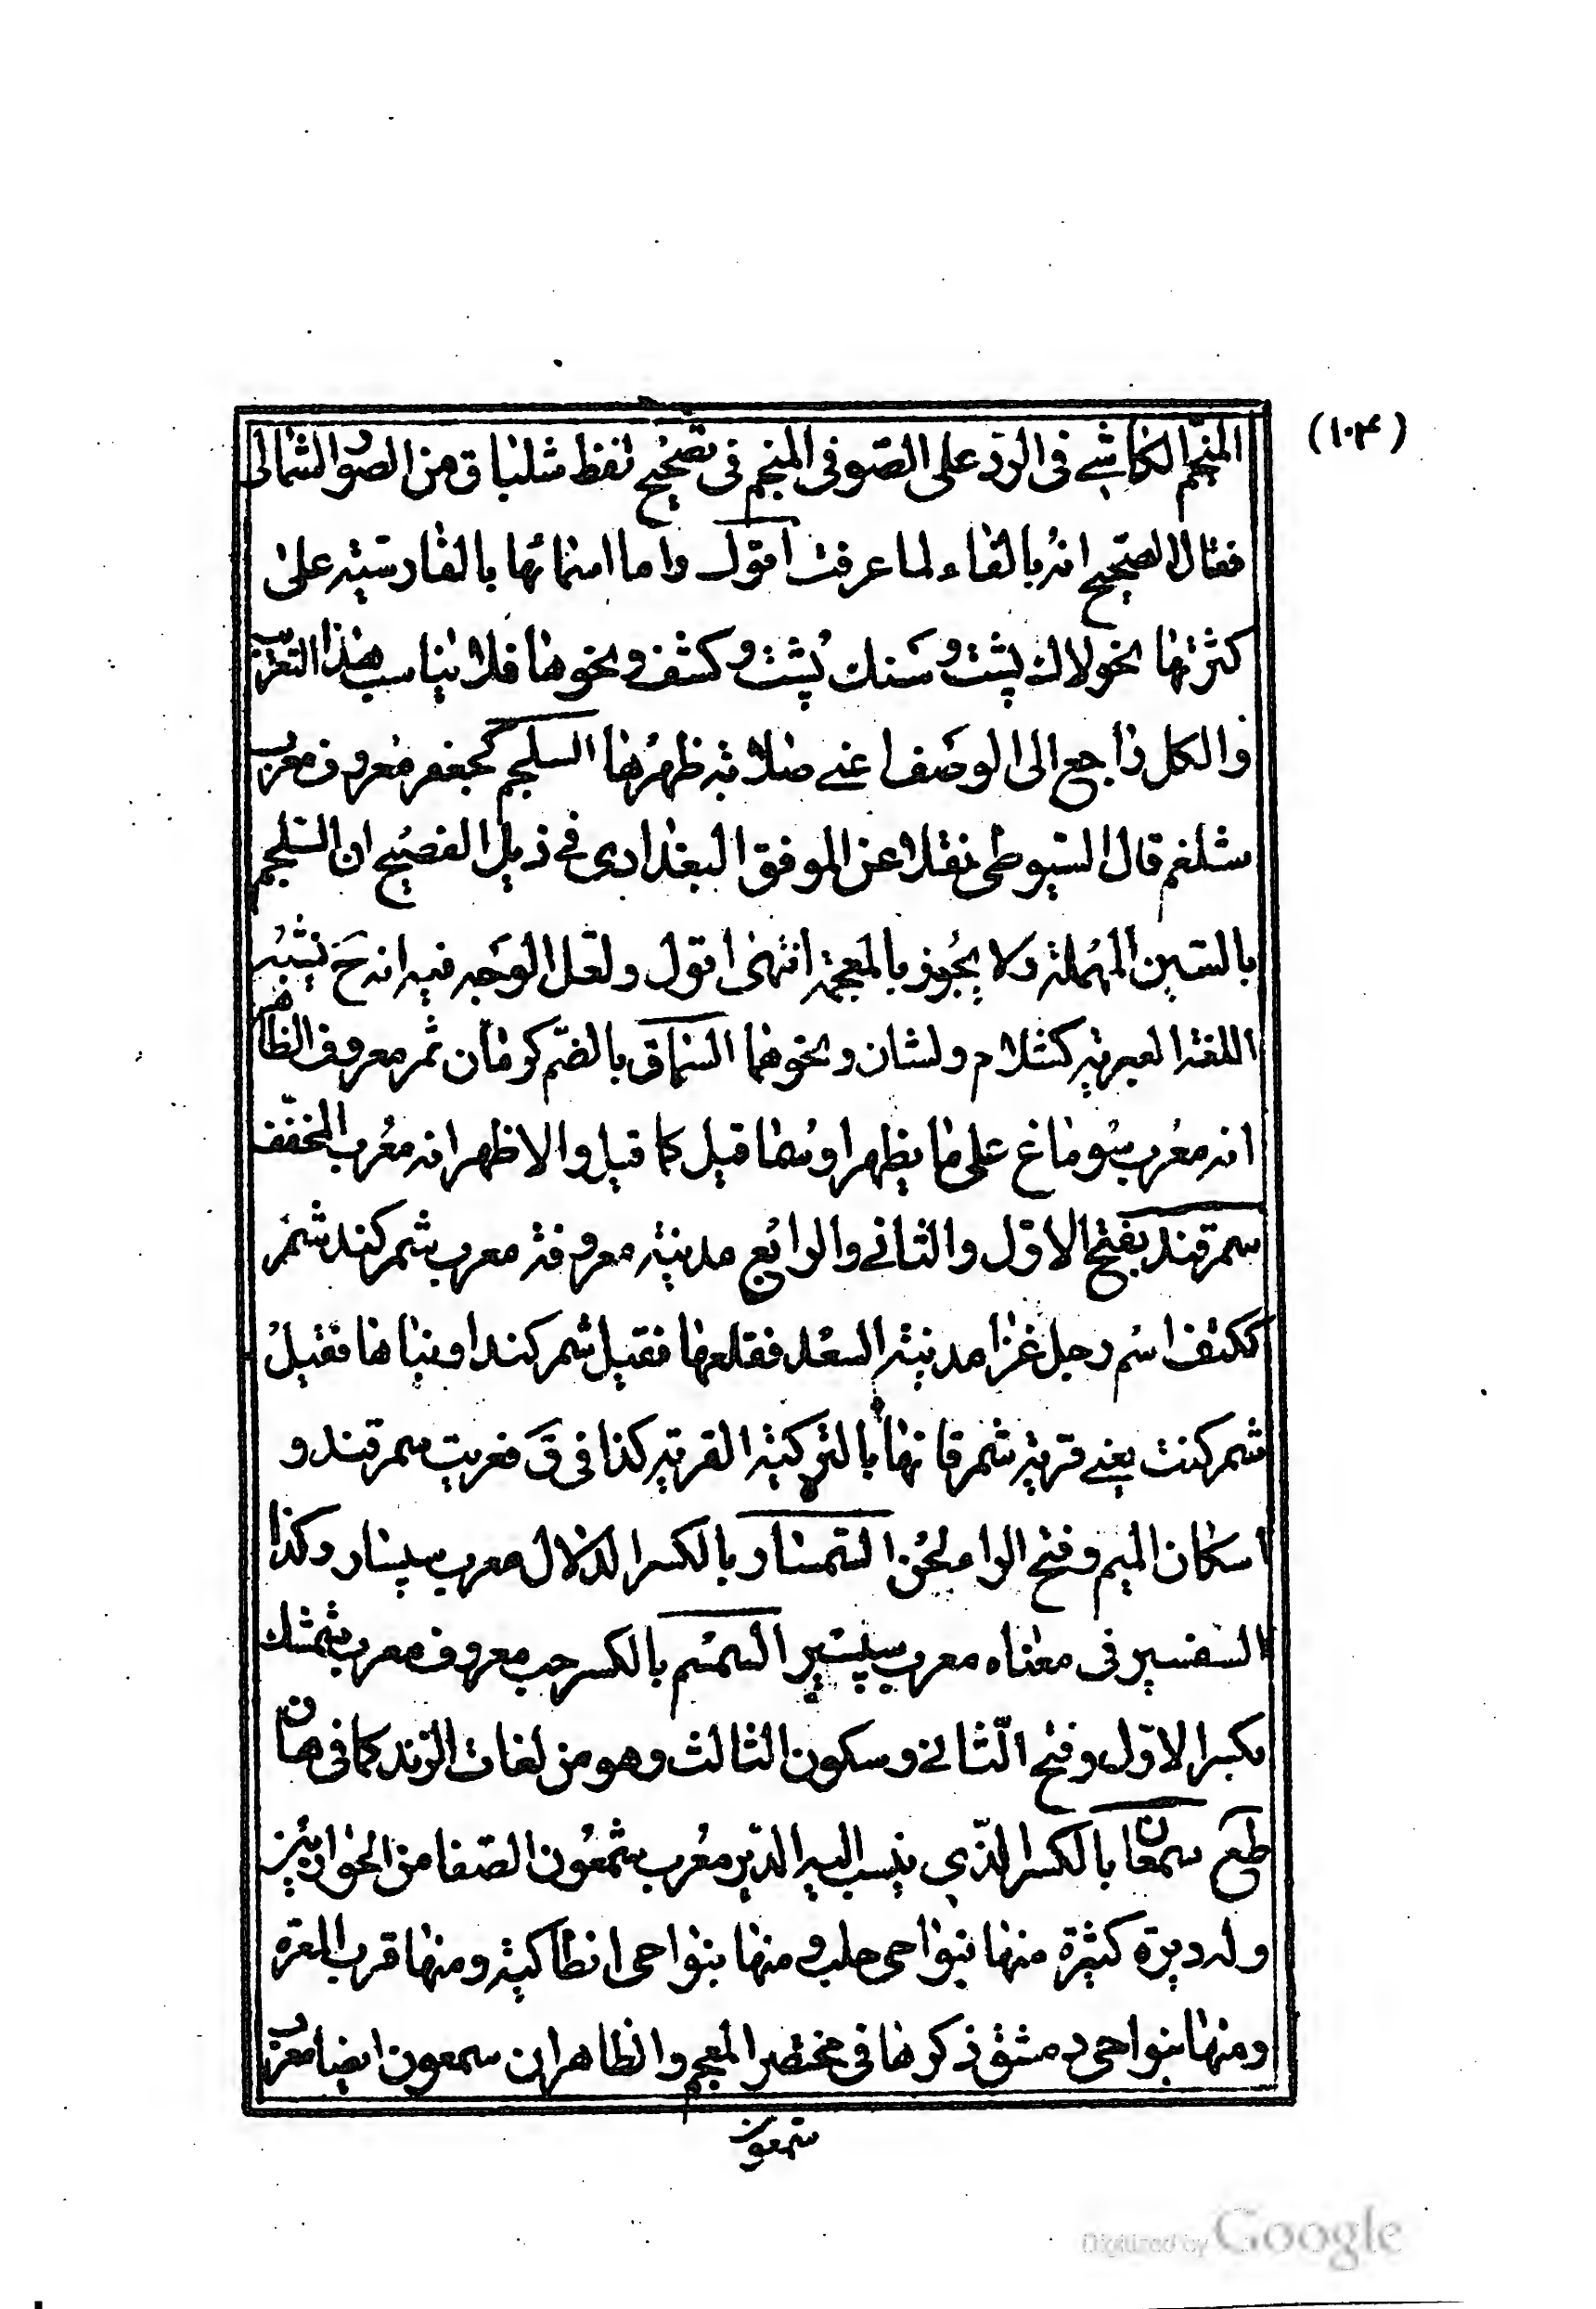 (١٠٤)
المنجم الكاشي في الرد على الصوفي المنجم في تصحيح لفظ شلباق من الصور الشمالى
فقال الصحيح انه بالفاء لما عرفت اقول واما اسمائها بالفارسيته على
كثرتها نحو لاك پشت و سنك پشت و كشف و نحوها فلا يناسب هذا التعريب
والكل راجع الى الوصف اعنى صلابته ظهرها السلجم كجعفر معروف معرب
شلغم قال السيوطى نقلا عن الموفق البغدادى في ذيل الفصيح ان السلجم
بالسين المهملة ولا يجوز بالمعجمة انتهى اقول ولعل الوجه فيه انه ح يشبه
اللغة العبرية كشلام ولشان ونحوهما السماق بالضم كرمان ثمر معروف الظاهر
انه معرب سوماغ على ما يظهر او سما قيل كما قيل والاظهر انه معرب المخفف
سمرقند بفتح الاول والثاني والرابع مدينة معروفة معرب شمركند شمر
ككتف اسم رجل غزا مدينة السغد فقلعها فقيل شمركند او بناها فقيل
شمركنت يعنى قرية شمر فانها بالتركية القرية كذا في ق فعربت سمرقند و
اسكان الميم وفتح الراء لحن السمسار بالكسر الدلال معرب سپسار وكذا
السفسير في معناه معرب سپسير السمسم بالكسر حب معروف معرب شمشك
بكسر الاول وفتح الثاني وسكون الثالث وهو من لغات الزند كما في هان
طع سمعان بالكسر الذي ينسب اليه الدير معرب شمعون الصفا من الحواريين
وله ديرة كثيرة منها بنواحى حلب ومنها بنواحى انطاكية ومنها قرب المعرة
ومنها بنواحى دمشق ذكرها في مختصر المعجم والظاهر ان سمعون ايضا معرب
شمعون
Digitized by Google